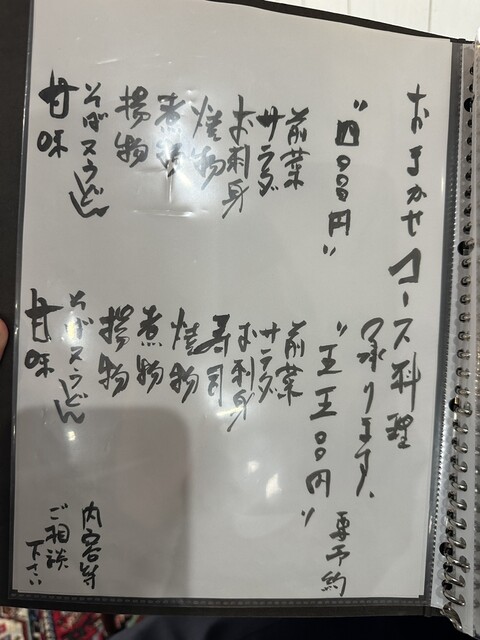 おまかせコース料理
承ります。
要予約
"四〇〇〇円"
前菜
サラダ
お刺身
焼物
煮物
揚物
そば又うどん
甘味
"五五〇〇円"
前菜
サラダ
お刺身
寿司
焼物
煮物
揚物
そば又うどん
甘味
内容等
ご相談
下さい